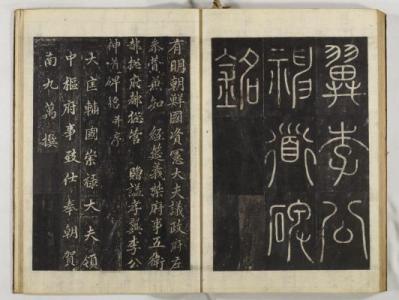 翼李公
神道碑
銘
有明朝鮮國資憲大夫議政府左
參贊兼知 經筵義禁府事五衛
都摠府都摠管 贈謚孝翼李公
神道碑銘并序
大匡輔國崇祿大夫領
中樞府事致仕奉朝賀
南九萬撰